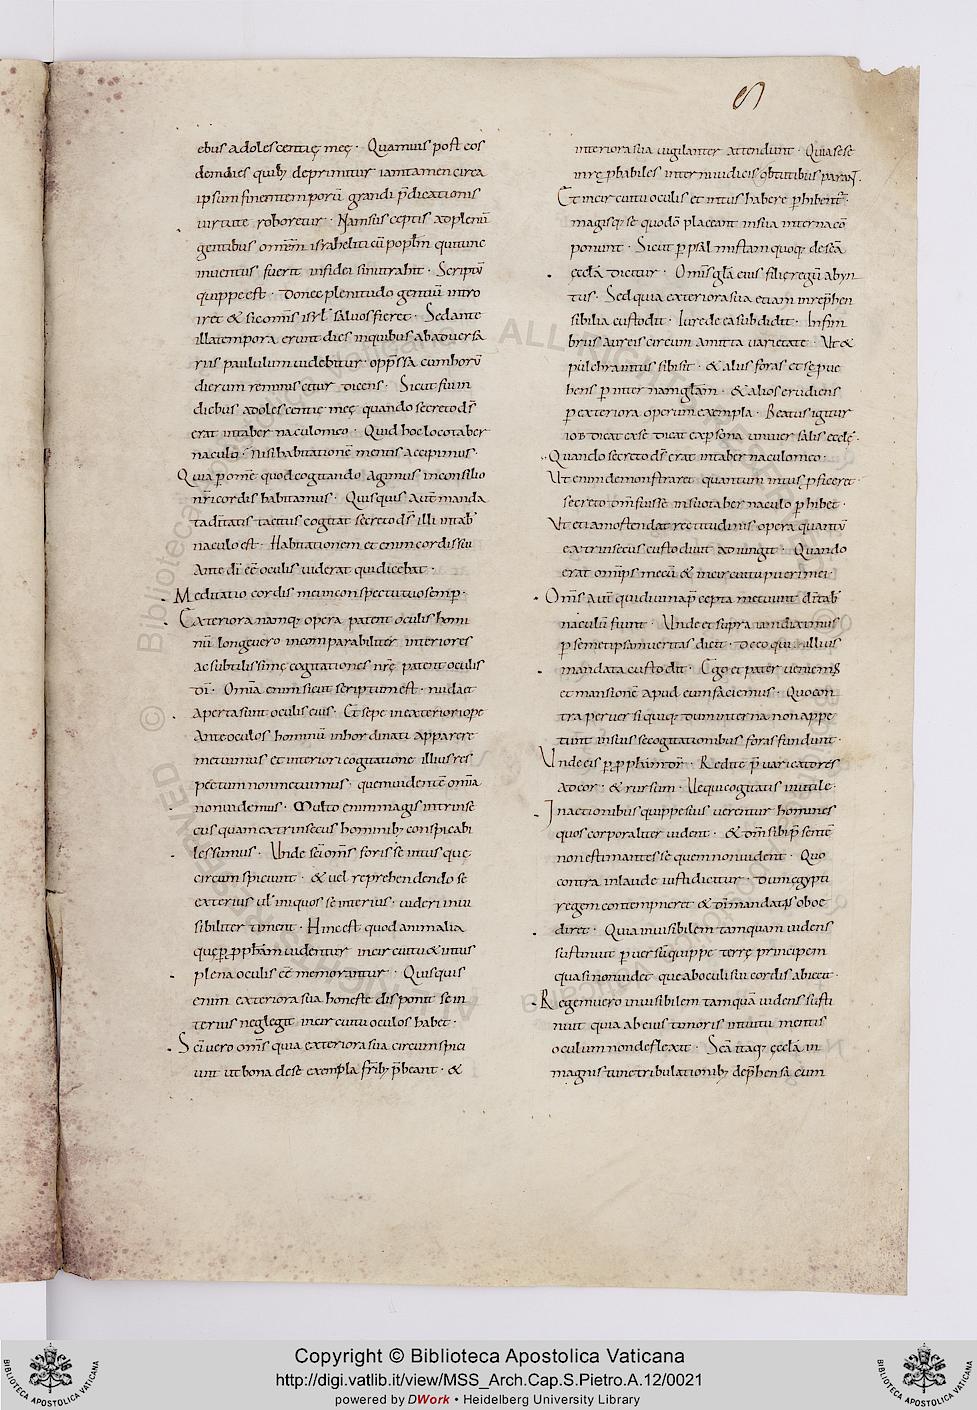 ebus adolescentię meę · Quamuis post eos
dem dies quib; deprimitur iam tamen circa
ipsum finem temporū grandi p̄dicationis
uirtute roboretur · Nam susceptis ad plenū
gentibus omnem israheliticū pop̄lm qui tunc
inuentus fuerit in fidei sinu trahit · Scriptū
quippe est · Donec plenitudo gentiū intro
iret & sic om̄s isrl̄ saluus fieret · Sed ante
illa tempora erunt dies in quibus ab aduersa
riis paululum uidebitur opp̄ssa cum horū
dierum reminiscetur dicens · Sicut fui in
diebus adolescentię meę quando secreto d̄s
erat in tabernaculo meo · Quid hoc loco taber
naculū · nisi habitationē mentis accipimus ·
Quia p omē quod cogitando agimus in consilio
nr̄i cordis habitamus · Quisquis aut̄ manda
ta d̄i tacitus cogitat secreto d̄s illi in tab̄
naculo est · Habitationem etenim cordis sui
ante d̄i eē oculis uiderat qui dicebat ·
Meditatio cordis mei in conspectu tuo semp ·
Exteriora namq; opera patent oculis homi
nū longe uero incomparabiliter interiores
ac subtilissimę cogitationes nr̄ę patent oculis
d̄i · Om̄a enim sicut scriptum est · nuda et
aperta sunt oculis eius · Et sepe in exteriori ope
ante oculos hominū inhordinati apparere
metuimus et in interiori cogitatione illius res
pectum non metuimus · quem uidentē om̄a
non uidemus · Multo enim magis intrinse
cus quam extrinsecus hominib; conspicabi
les sumus · Unde sc̄i om̄s foris se intusque
circumspiciunt · & uel reprehendendo se
exterius ul̄ iniquos se interius · uideri inui
sibiliter timent · Hinc est quod animalia
quę p p̄ph̄am uidentur in circuitu & intus
plena oculis eē memorantur · Quisquis
enim exteriora sua honeste disponit se in
terius neglegit in circuitu oculos habet ·
Sc̄i uero om̄s quia exteriora sua circumspici
unt ut bona de se exempla fr̄ib; p̄beant · &
interiora sua uigilanter attendunt · Quia sese
inrep̄hensibiles interni iudicis obtutibus parant ·
Et in circuitu oculis et intus habere phibentur ·
magisq; se quod dō placeant in sua interna cō
ponunt · Sicut p psal mistam quoq; de sc̄a
ęcclā dicitur · Om̄s glā eius filię regū ab in
tus · Sed quia exteriora sua etiam inrep̄hen
sibilia custodit · Iure de ea subdidit · In fim
briis aureis circum amicta uarietate · Ut &
pulchra intus sibi sit · & aliis foras et se puc
hens p internam glām · & alios erudiens
p exteriora operum exempla · Beatus igitur
iob dicat ex se dicat ex psona uniuersalis ecclę ·
Quando secreto d̄s erat in tabernaculo meo ·
Ut enim demonstraret quantum intus pficeret ·
secreto d̄m fuisse in suo tabernaculo phibet ·
Ut etiam ostendat rectitudinis opera quantū
extrinsecus custodiuit adiungit · Quando
erat om̄ps mecū & in circuitu pueri mei ·
Om̄s aut̄ qui diuina p̄cepta metuunt d̄i tab̄
naculū fiunt · Unde et supra iam diximus
p semetipsam ueritas dicit · De eo qui illius
mandata custodit · Ego et pater ueniem̄
et mansionē apud eum faciemus · Quo con
tra peruersi quiq; dum interna non appe
tunt in suis se cogitationibus foras fundunt ·
Unde eis p p̄ph̄am dr̄ · Redite p̄uaricatores
ad cor · & rursum · Ue qui cogitatis inutile ·
In actionibus quippe suis uerentur homines
quos corporaliter uident · & d̄m sibi p̄sentē
non estimantes se quem non uident · Quo
contra in laude iusti dicitur · Dum egypti
regem contempneret & d̄i mandatis oboe
diret · Quia inuisibilem tamquam uidens
sustinuit peruersū quippe terrę principem
quasi non uidet que ab oculis sui cordis abiecit ·
Regem uero inuisibilem tamquā uidens susti
nuit quia ab eius timoris intuitu mentis
oculum non deflexit · Sc̄a itaq; ęcclā in
magnis tunc tribulationib; dep̄hensa cum
Copyright © Biblioteca Apostolica Vaticana
http://digi.vatlib.it/view/MSS_Arch.Cap.S.Pietro.A.12/0021
powered by DWork • Heidelberg University Library